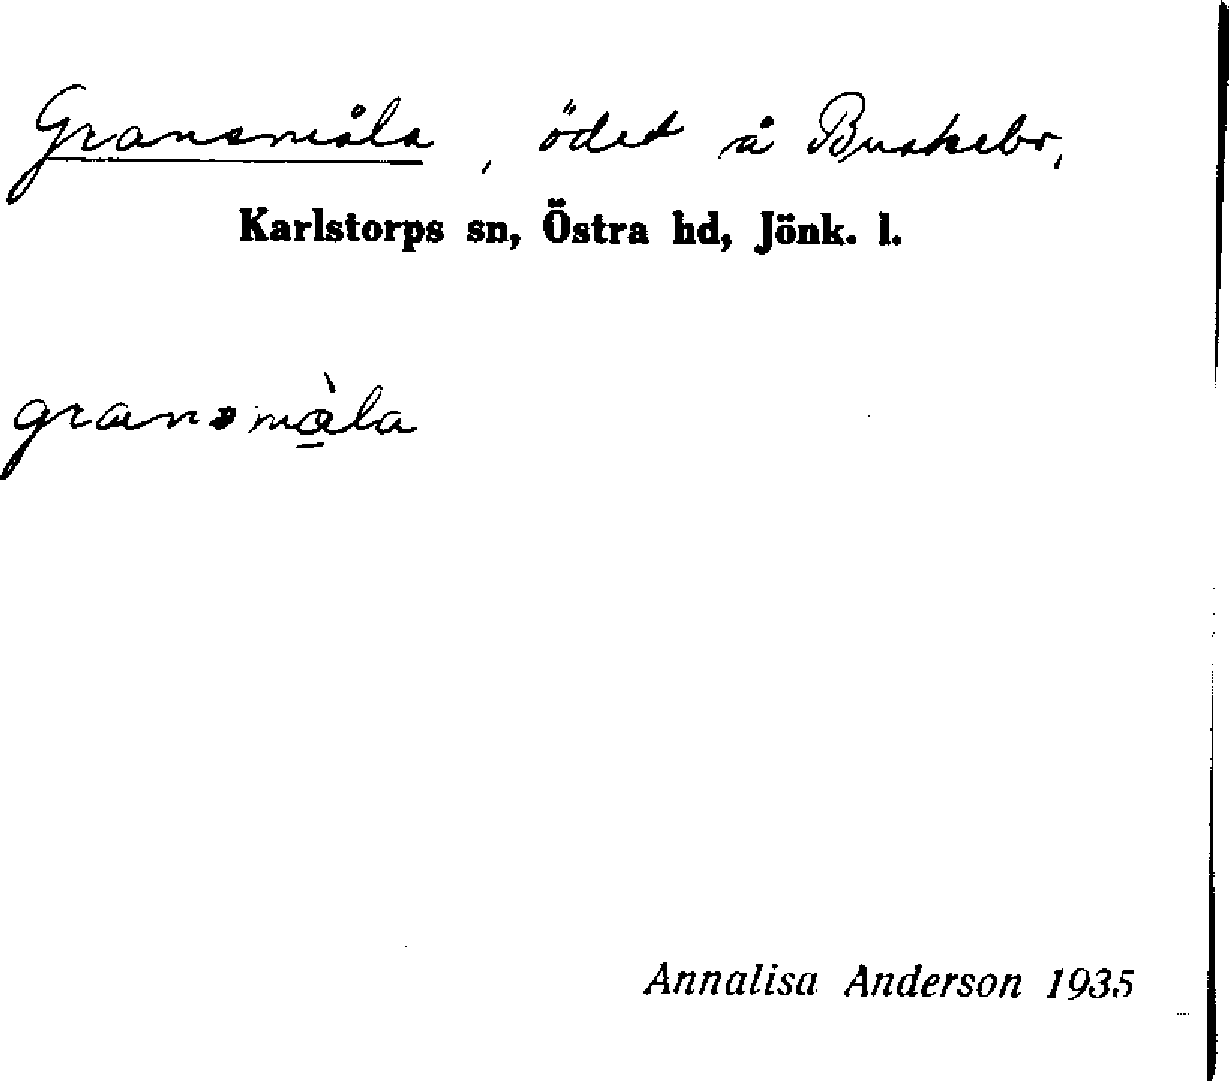 Gransmåla, ödet å Buskebr,
Karlstorps sn, Östra hd, Jönk. l.
gransmåla
Annalisa Anderson 1935